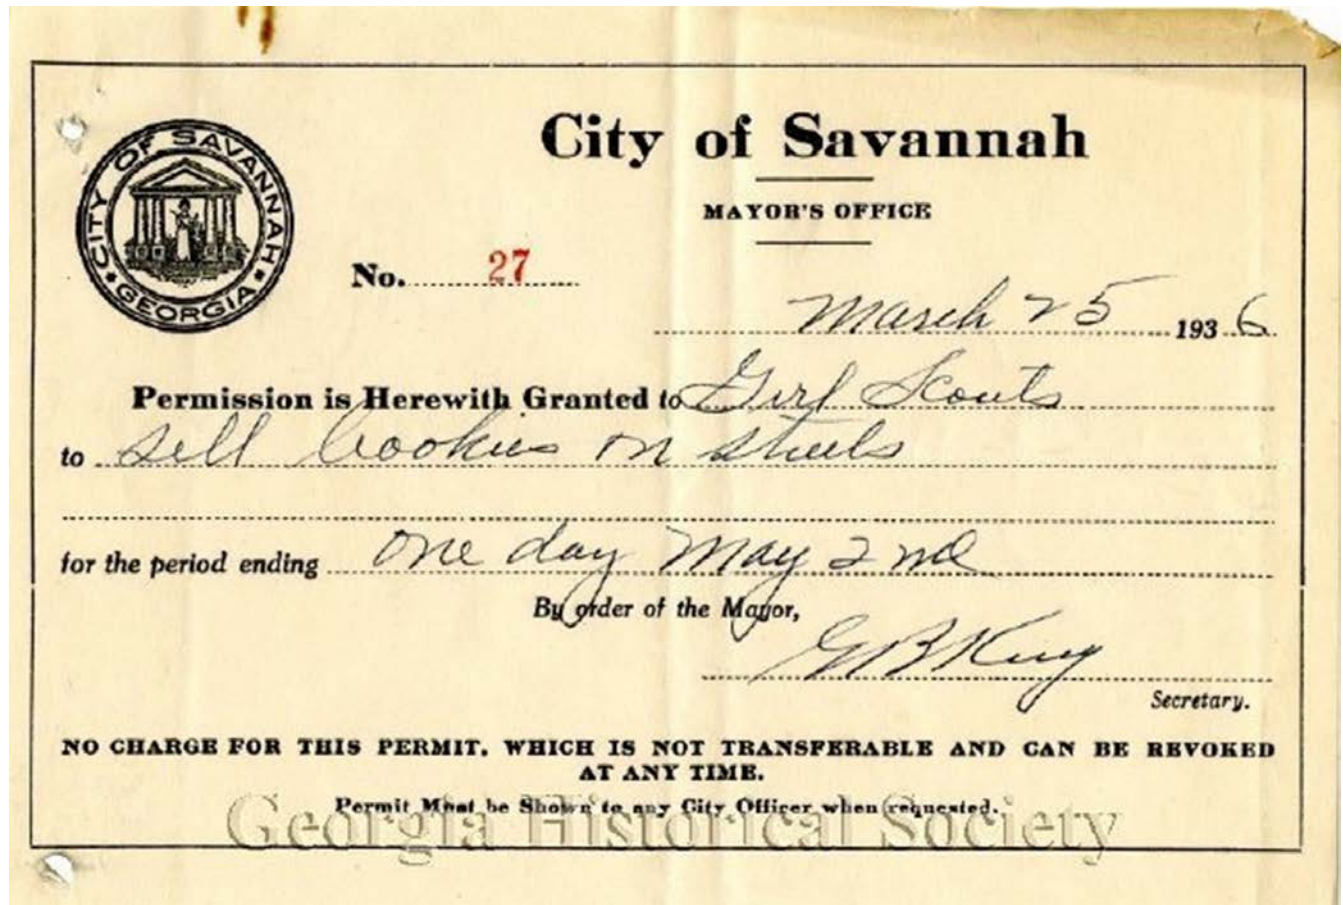 City of Savannah
MAYOR'S OFFICE
CITY OF SAVANNAH
GEORGIA
No. 27
March 25 1936
Permission is Herewith Granted to Girl Scouts
to sell Cookies on streets
for the period ending one day May 2nd
By order of the Mayor,
G B King
Secretary.
NO CHARGE FOR THIS PERMIT, WHICH IS NOT TRANSFERABLE AND CAN BE REVOKED
AT ANY TIME.
Permit Must be Shown to any City Officer when requested.
Georgia Historical Society